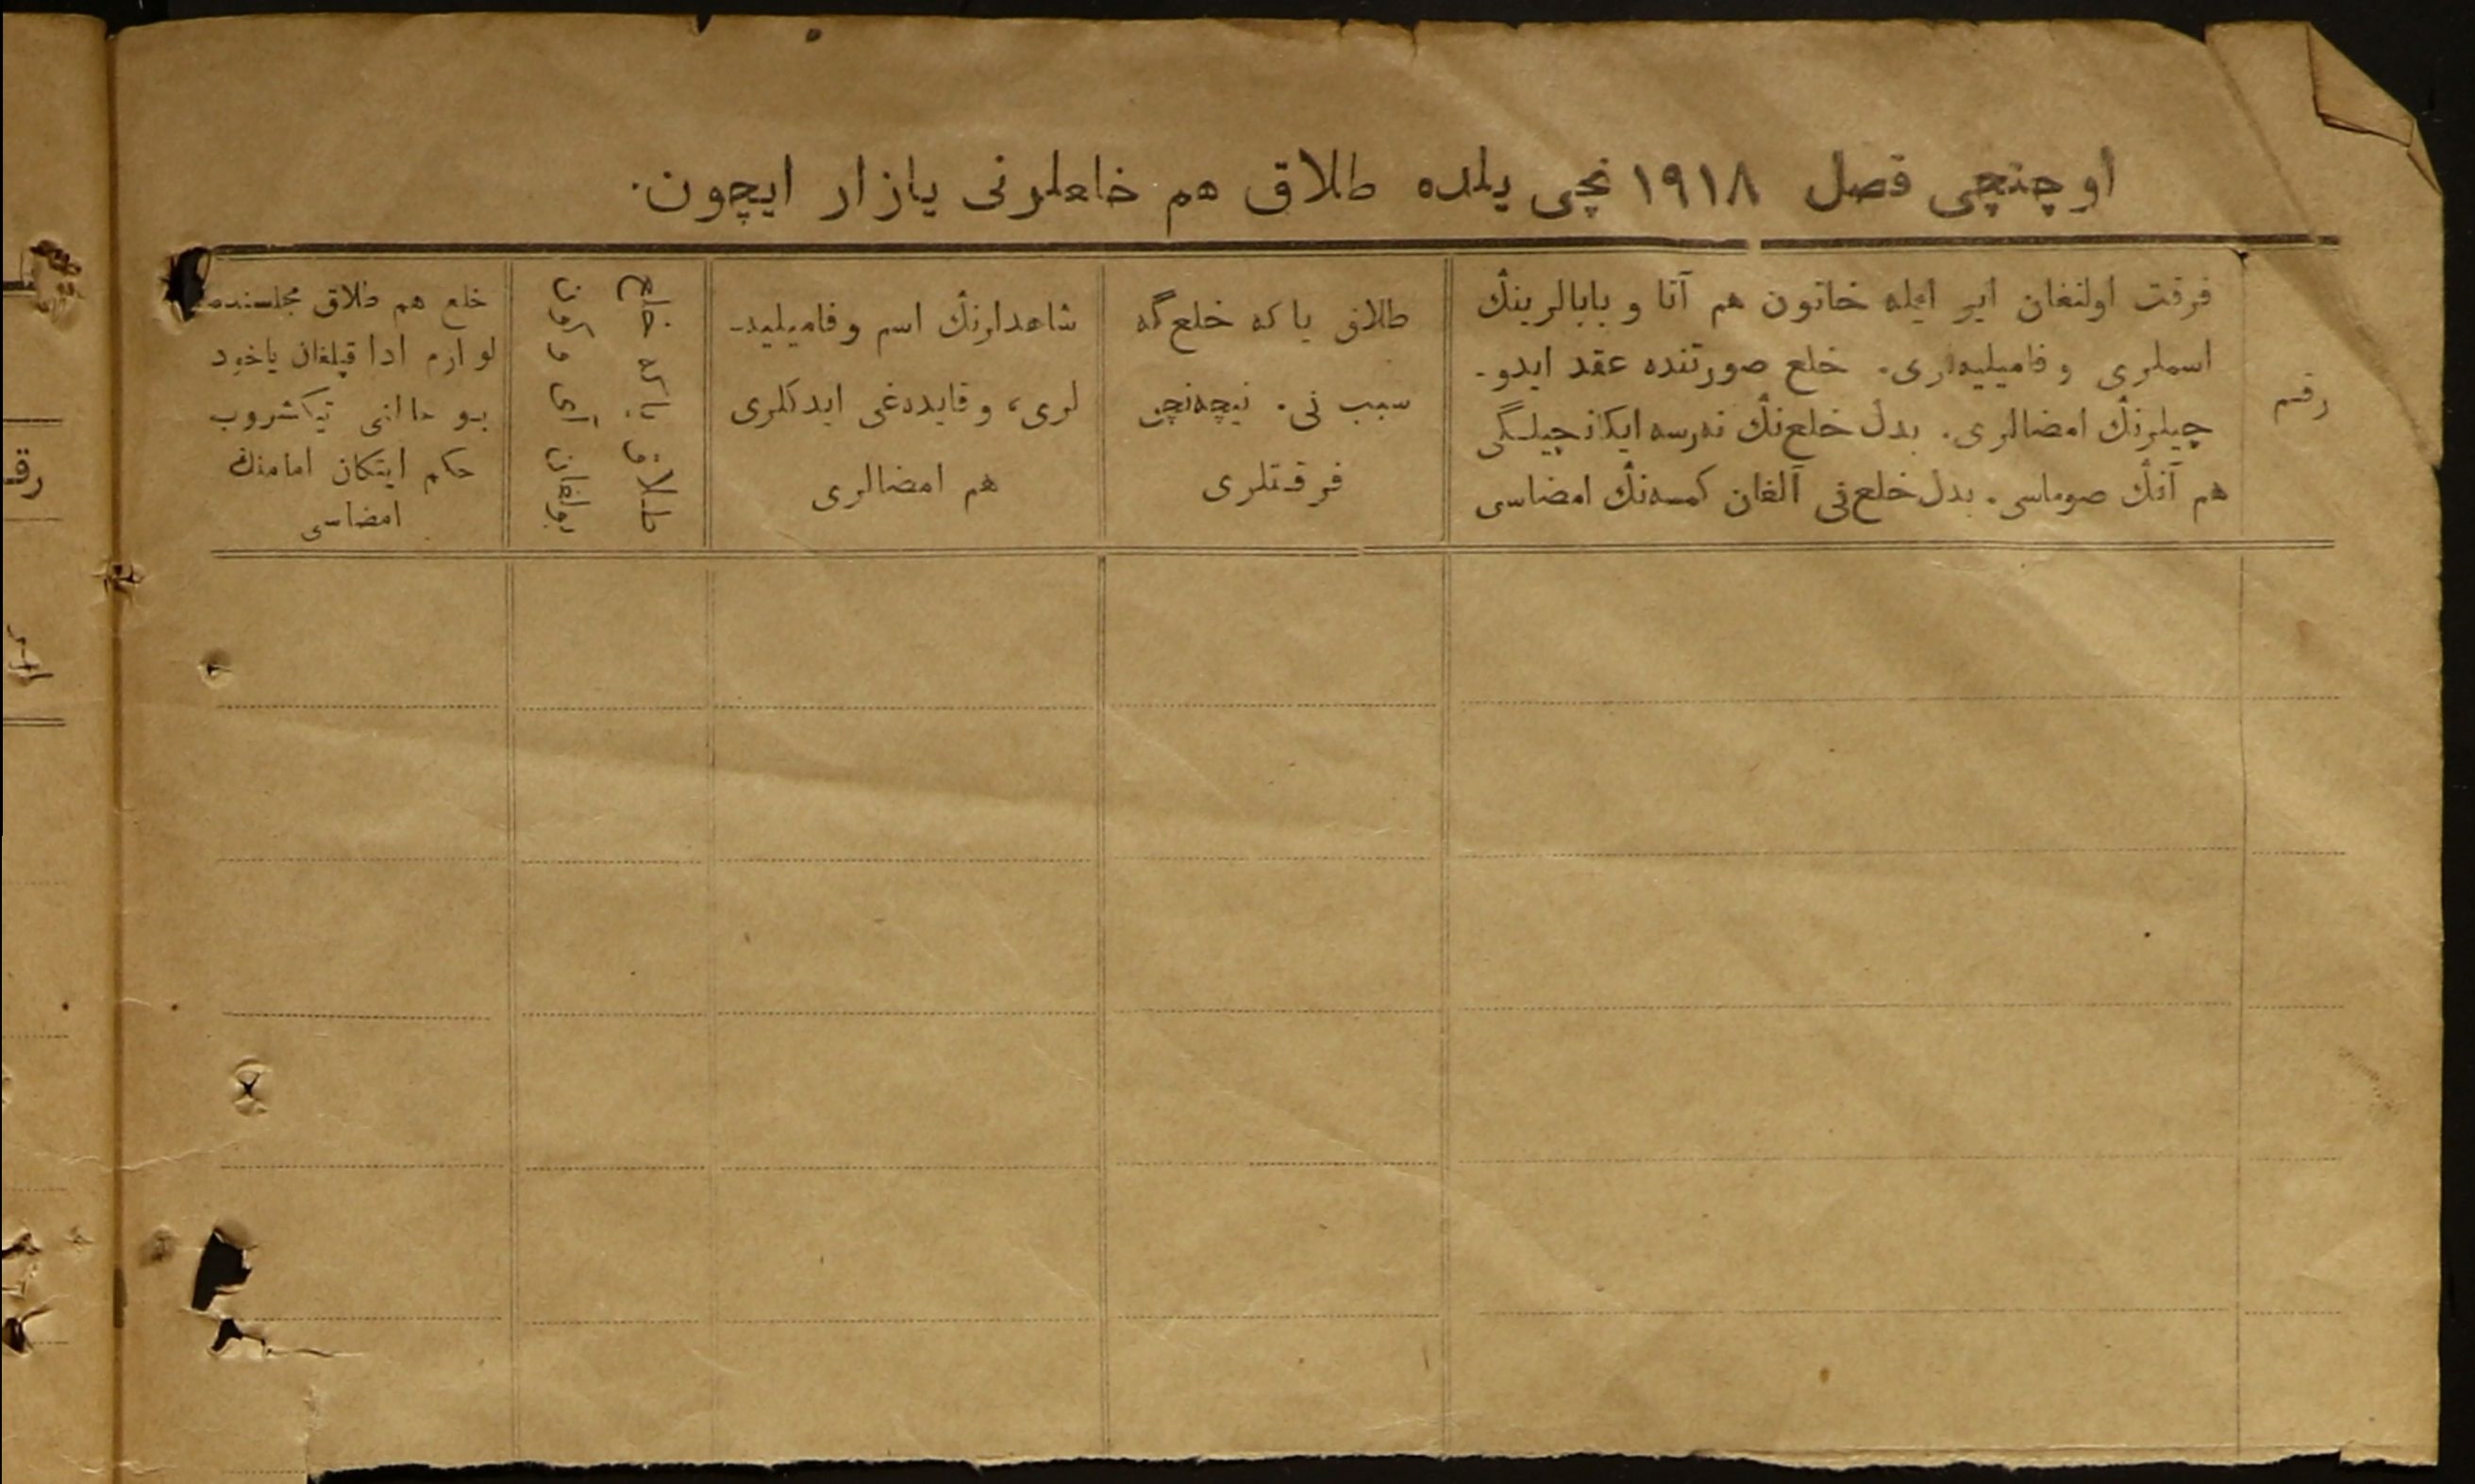 اوچنچی فصل ١٩١٨ نچی یلده طلاق هم خلعلرنی یازار ایچون.
رقم
فرقت اولنغان ایر ایله خاتون هم آتا و بابالرینڭ
اسملری و فامیلیه‌لری. خلع صورتنده عقد ایدو-
چیلرنڭ امضالری. بدل خلع‌نڭ نه‌رسه ایکانچیلگی
هم آنڭ صوماسی. بدل خلع‌نی آلغان کمسه‌نڭ امضاسی
طلاق یا که خلع گه
سبب نی. نیچه‌نچی
فرقتلری
شاهدلرنڭ اسم و فامیلیه-
لری، و قایده‌غی ایدکلری
هم امضالری
طلاق یا که خلع
بولغان آی و کون
خلع هم طلاق مجلسنده
لوازم ادا قیلغان یاخود
بو حالنی تیکشروب
حکم ایتکان امامنڭ
امضاسی
رقم